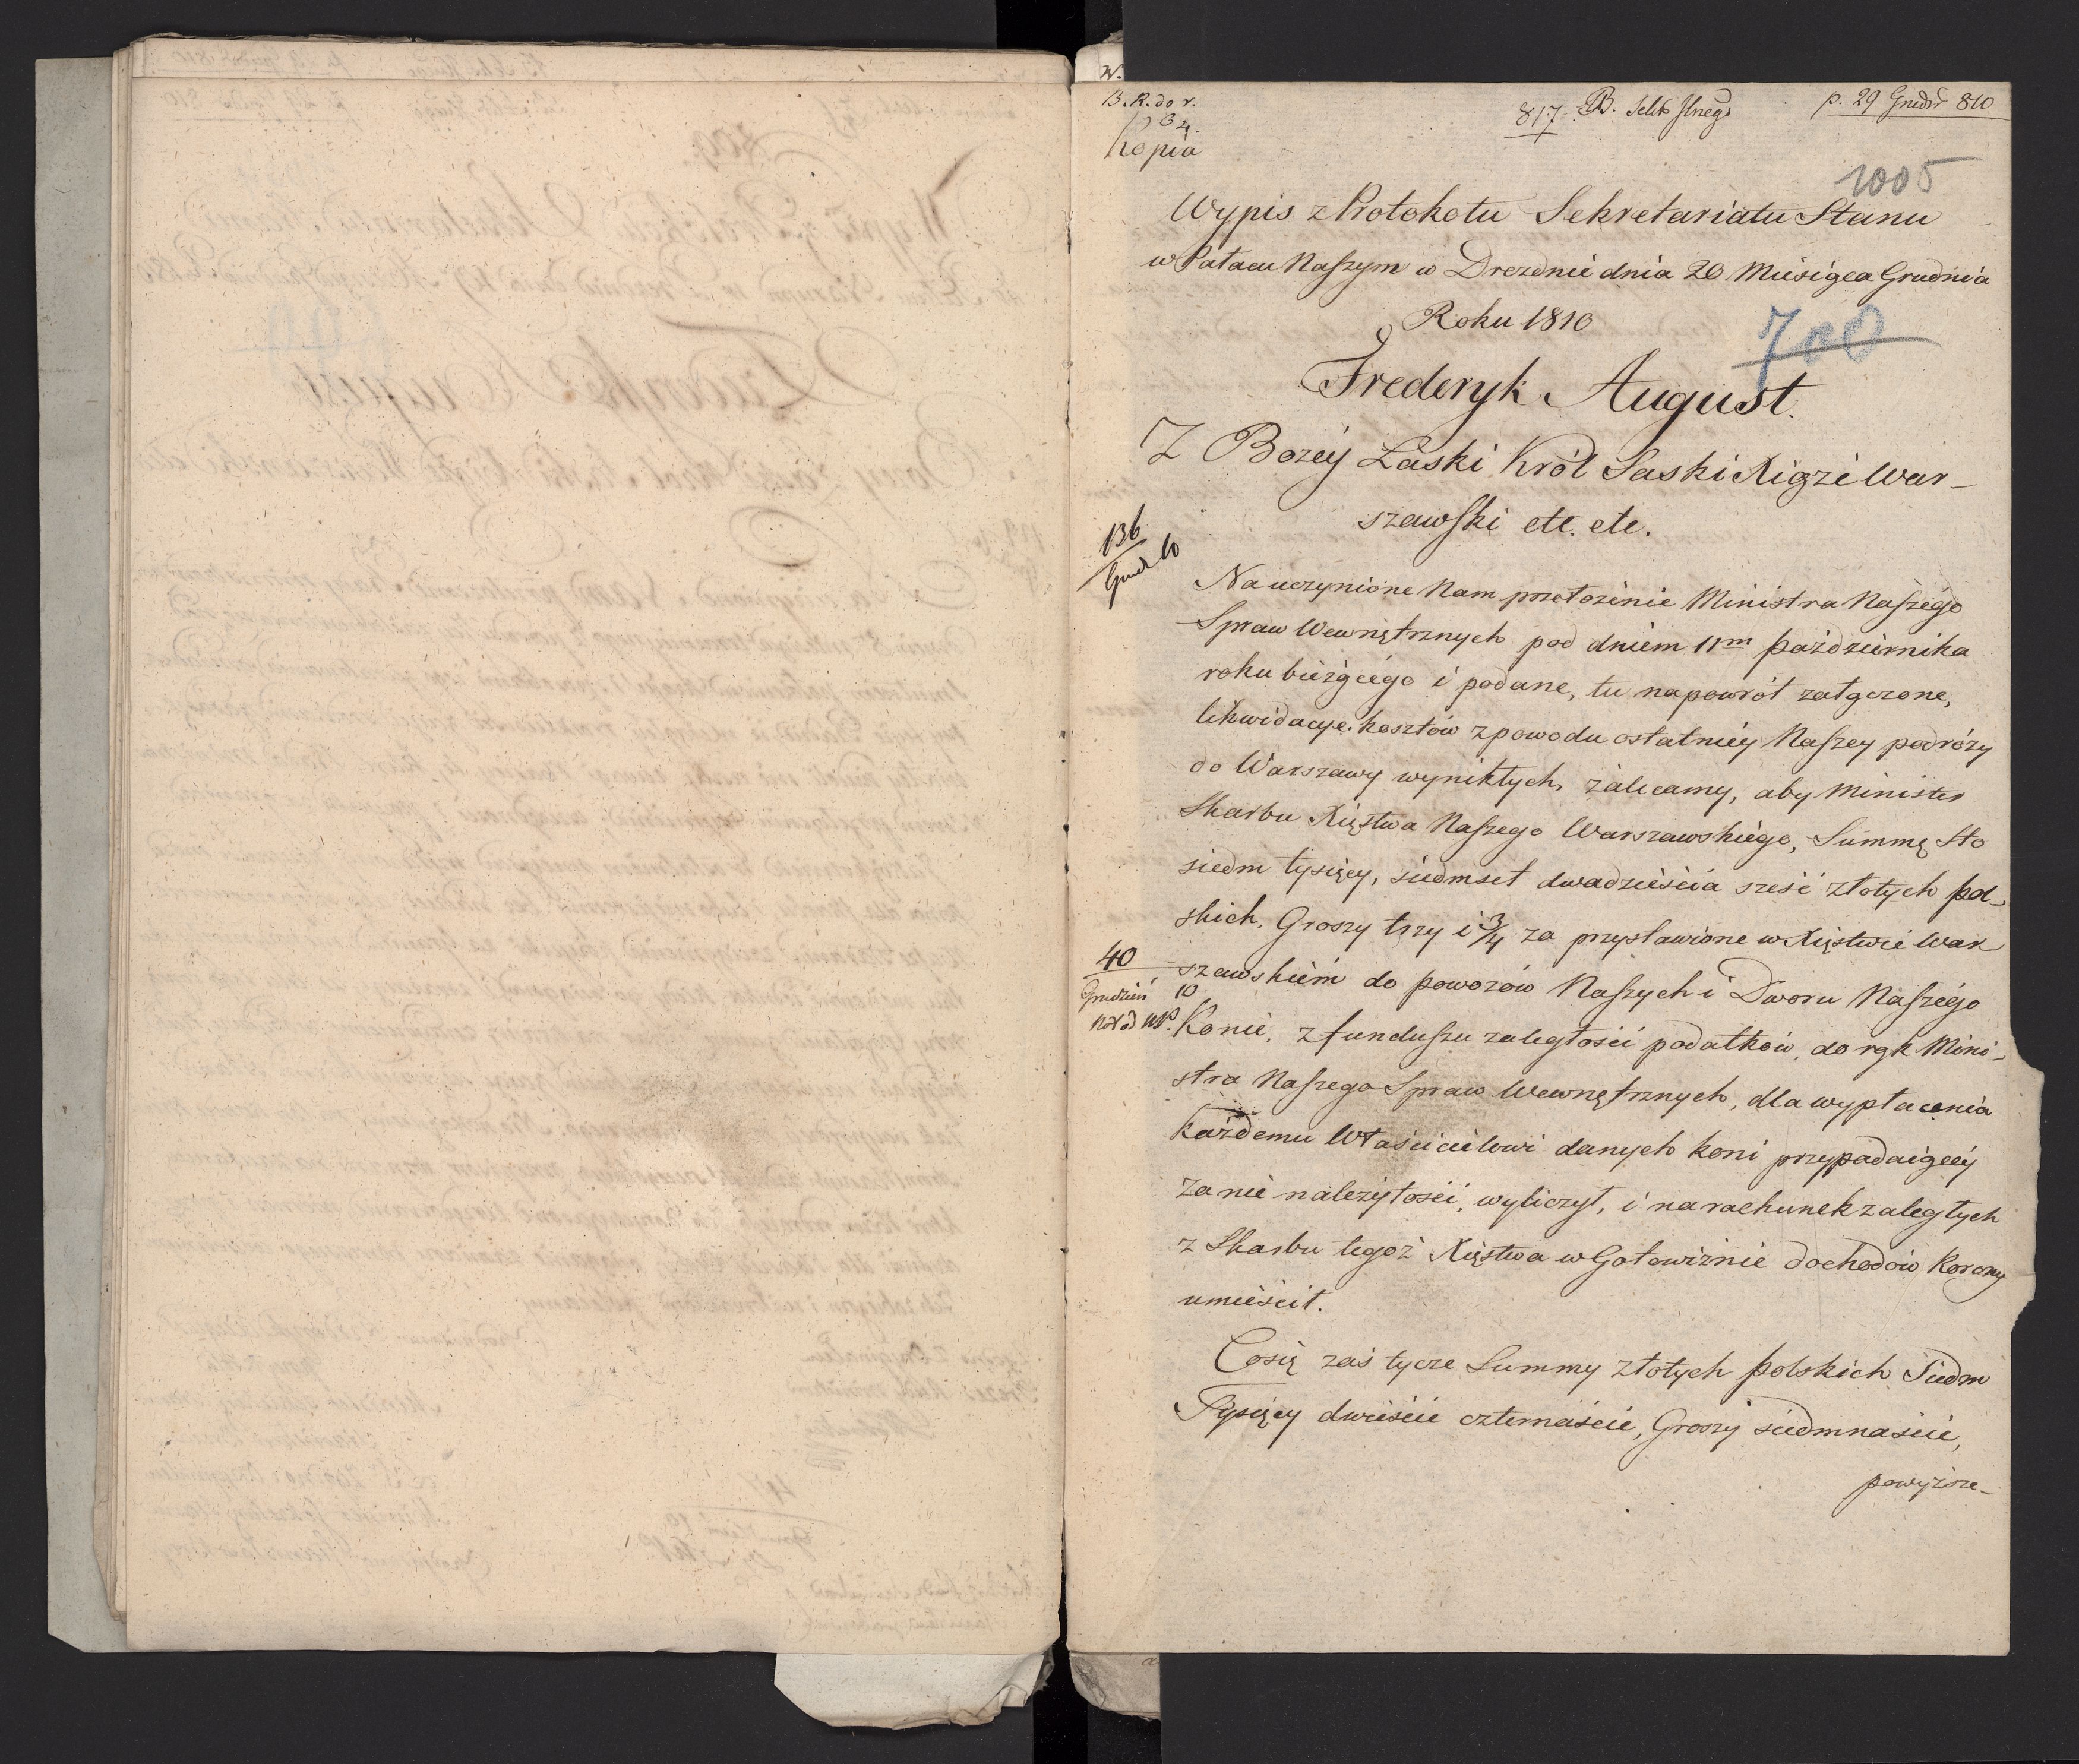 B. R. do r.
Kopia
817. B. p. 29 Grudń 810
1005
Wypis z Protokołu Sekretariatu Stanu
w Pałacu Naszym w Dreznie dnia 20 Miesiąca Grudnia
Roku 1810
700
Frederyk August.
Z Bożey Łaski Król Saski Xiąże War-
szawski etc. etc.
136
Grud 10
Na uczynione Nam przełożenie Ministra Naszego
Spraw Wewnętrznych pod dniem 11m Października
roku bieżącego i podane, tu napowrót załączone,
likwidacye kosztów z powodu ostatniey Naszey podróży
do Warszawy wynikłych, zalecamy, aby Minister
Skarbu Xięstwa Naszego Warszawskiego, Summę Sto
siedm tysięcy, siedmset dwadzieścia sześć złotych Pol-
skich, Groszy trzy i 3/4 za przystawione w Xięstwie War
szawskiém do powozów Naszych i Dworu Naszego
40
Grudzień 10
Konie, z funduszu zaległości podatków, do rąk Mini-
stra Naszego Spraw Wewnętrznych, dla wypłacenia
każdemu Właścicielowi danych koni przypadaiącéy
za nie należytości, wyliczył, i na rachunek zaległych
z Skarbu tegoż Xięstwa w Gotowiźnie dochodów Korony
umieścił.
Co się zaś tycze Summy złotych polskich Siedm
Tysięcy dwieście czternaście, Groszy siedmnaście,
powyższe-